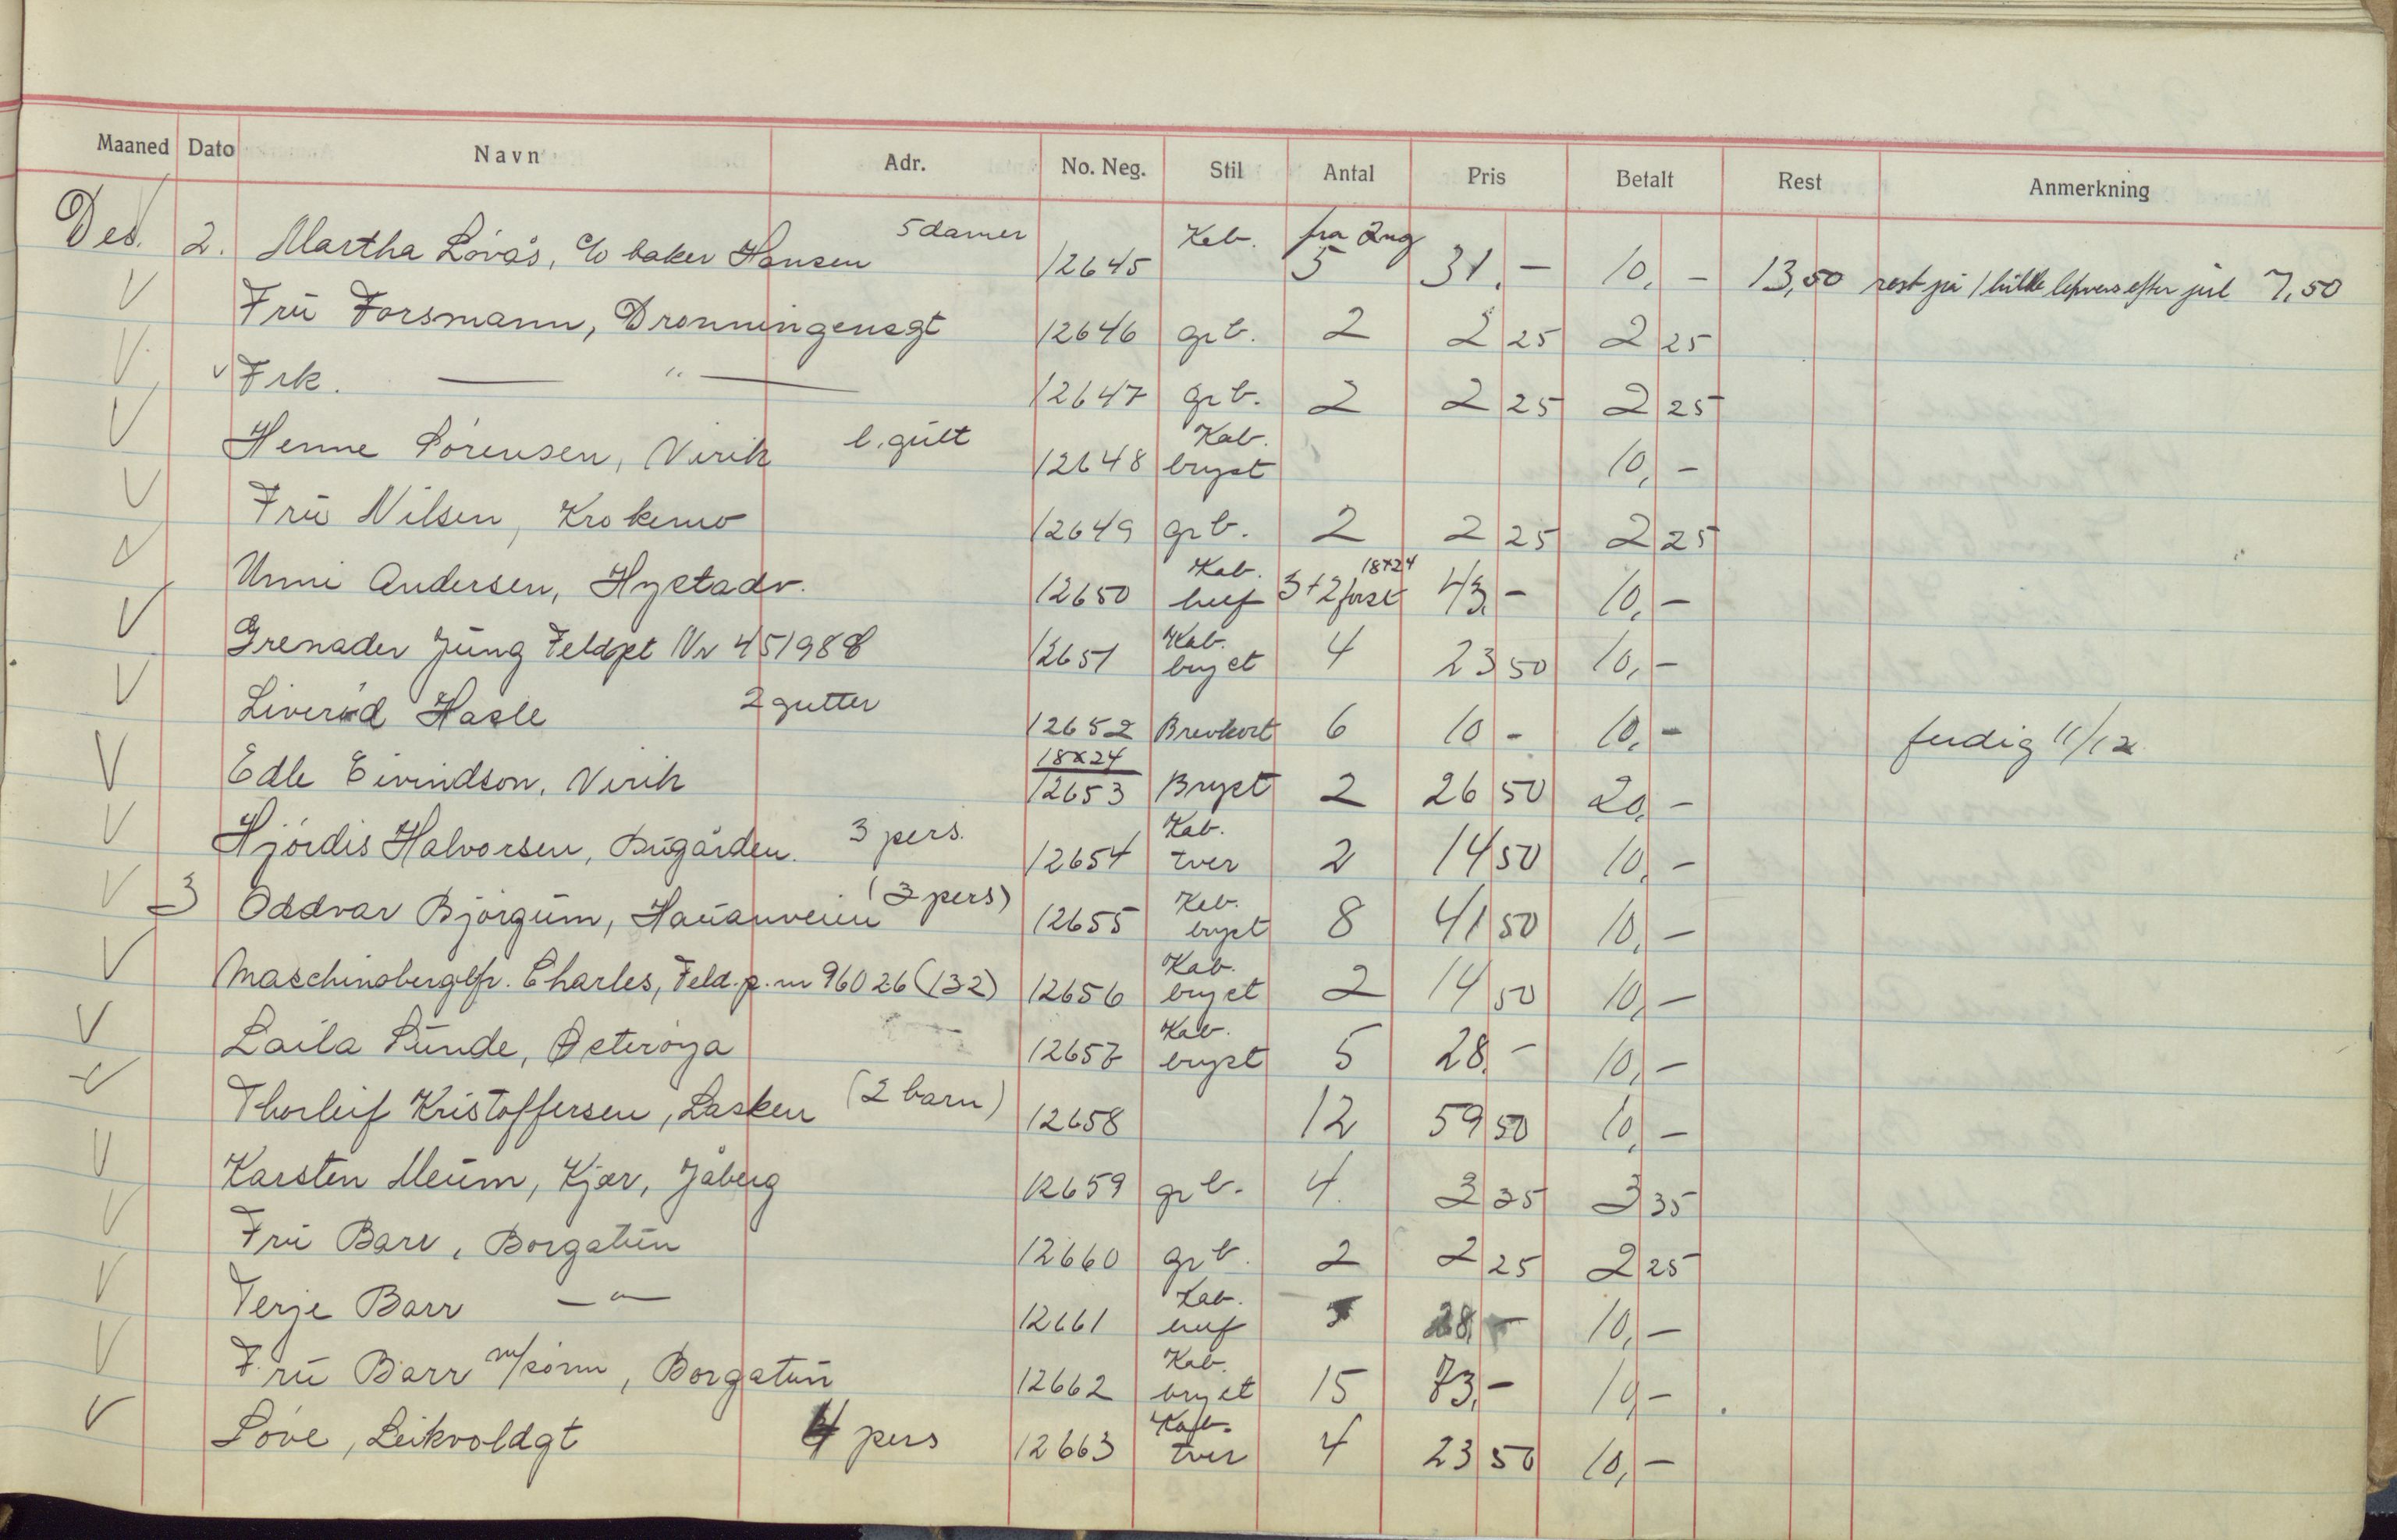 Maaned Dato Navn Adr. No. Neg. Stil Antal Pris Betalt Rest Anmerkning
Des. 2. Martha Lövås, c/o baker Hansen 5 damer 12645 Kab. fra 2ng 5 31,- 10,- 13,50 rest på 1 bilde leveres efter jul 7,50
Frü Forsmann, Dronningensgt 12646 grb. 2 2 25 2 25
Frk. — " — 12647 grb. 2 2 25 2 25
Henne Sörensen, Virik l. gütt 12648 Kab. bryst 10,-
Frü Nilsen, Krokemo 12649 grb. 2 2 25 2 25
Unni Andersen, Hystadv. 12650 Kab. huf 3+2 forst 18x24 43,- 10,-
Grenader Jüng Feldpst Nr 451988 12651 Kab. bryst 4 23 50 10,-
Liveröd Hasle 2 gutter 12652 Brevkort 6 10 - 10,- ferdig 11/12
Edle Eivindson, Virik 18x24 12653 Bryst 2 26 50 20,-
Hjördis Halvorsen, Bügården. 3 pers. 12654 Kab. tver 2 14 50 10,-
3 Oddvar Björgüm, Haüanveien (3 pers) 12655 Kab. bryst 8 41 50 10,-
Maschinobergefr. Charles, Feld.p. nr 96026 (132) 12656 Kab. bryst 2 14 50 10,-
Laila Sünde, Østeröya 12657 Kab. bryst 5 28,- 10,-
Thorleif Kristoffersen, Lasken (2 barn) 12658 12 59 50 10,-
Karsten Meüm, Kjær, Jåberg 12659 grb. 4. 3 35 3 35
Frü Barr, Borgatün 12660 grb. 2 2 25 2 25
Terje Barr — " — 12661 Kab. huf 5 28,- 10,-
Frü Barr m/sönn, Borgatün 12662 Kab. bryst 15 73,- 10,-
Löve, Leikvoldgt 4 pers 12663 Kab. tver 4 23 50 10,-